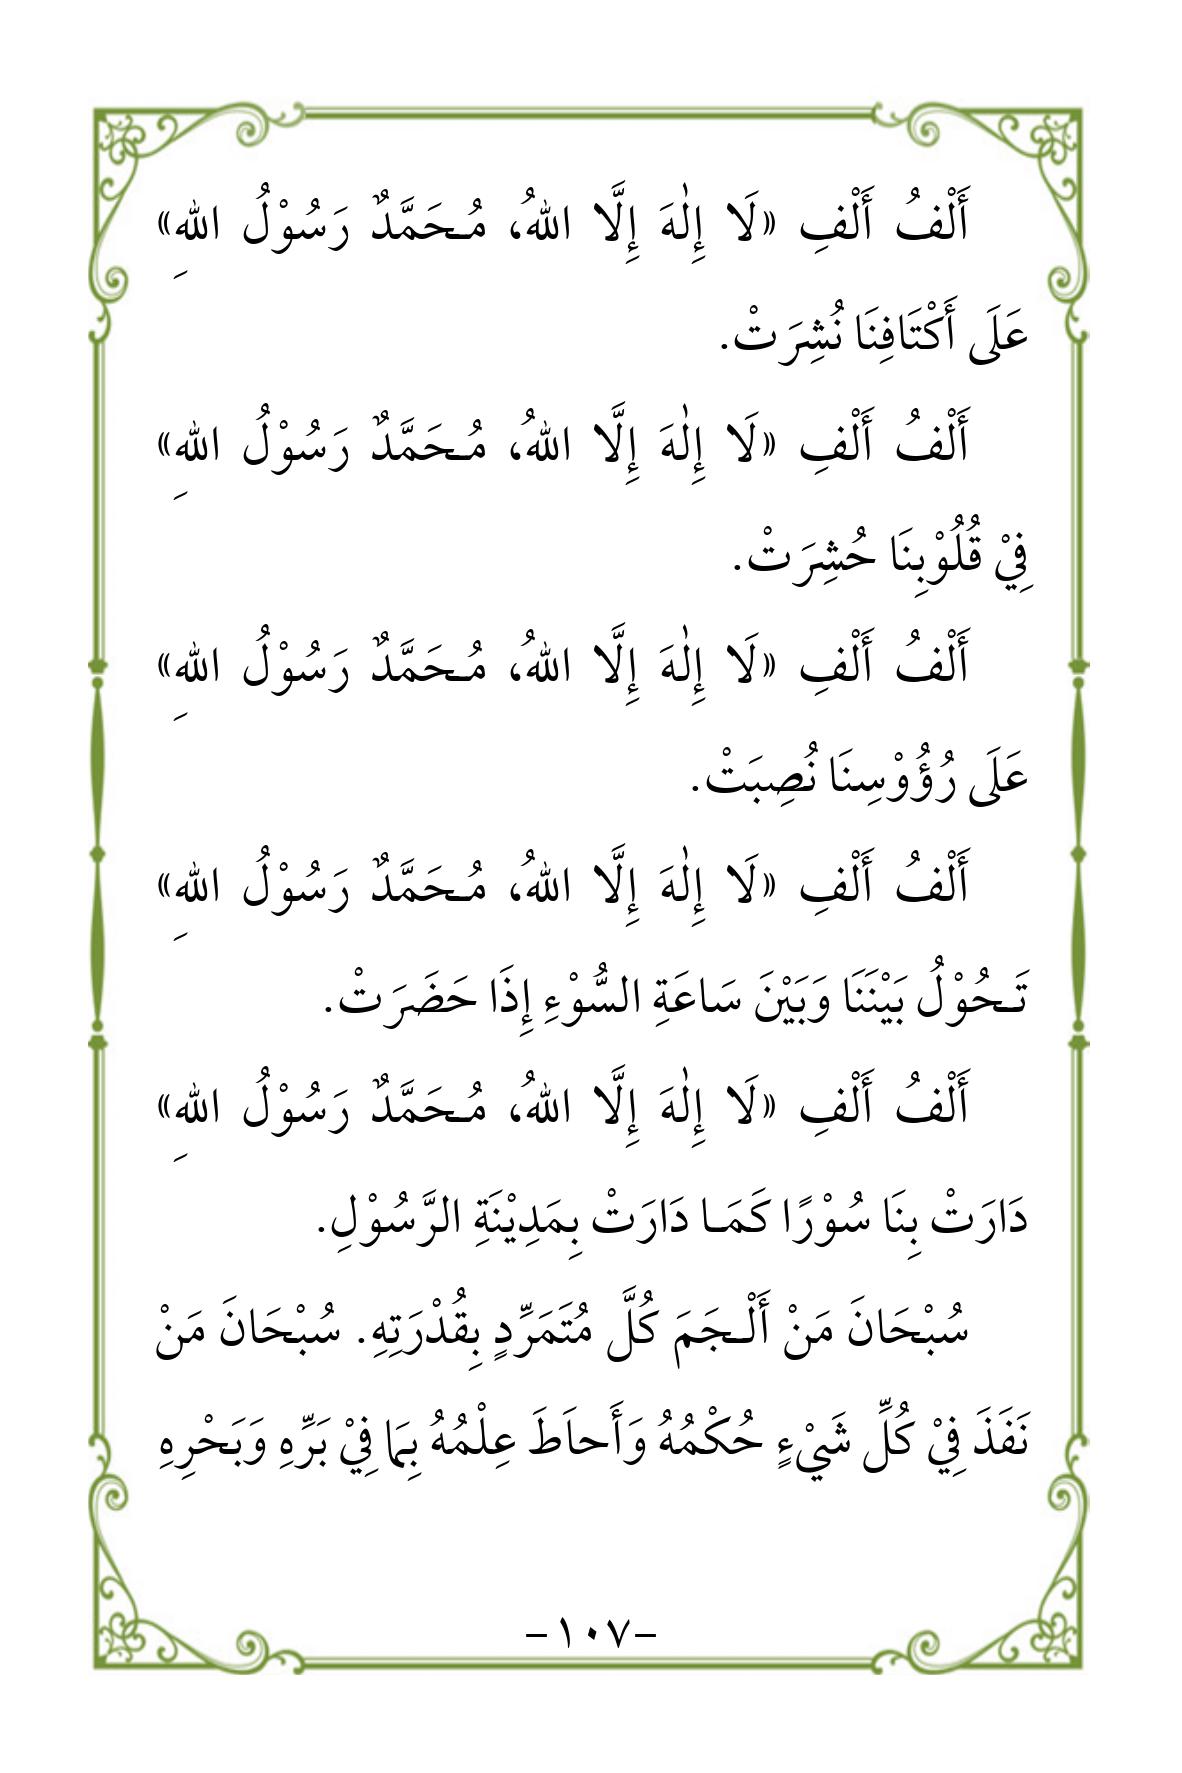 أَلْفُ أَلْفِ «لَا إِلٰهَ إِلَّا اللهُ، مُـحَمَّدٌ رَسُوْلُ اللهِ»
عَلَى أَكْتَافِنَا نُشِرَتْ.
أَلْفُ أَلْفِ «لَا إِلٰهَ إِلَّا اللهُ، مُـحَمَّدٌ رَسُوْلُ اللهِ»
فِيْ قُلُوْبِنَا حُشِرَتْ.
أَلْفُ أَلْفِ «لَا إِلٰهَ إِلَّا اللهُ، مُـحَمَّدٌ رَسُوْلُ اللهِ»
عَلَى رُؤُوْسِنَا نُصِبَتْ.
أَلْفُ أَلْفِ «لَا إِلٰهَ إِلَّا اللهُ، مُـحَمَّدٌ رَسُوْلُ اللهِ»
تَـحُوْلُ بَيْنَنَا وَبَيْنَ سَاعَةِ السُّوْءِ إِذَا حَضَرَتْ.
أَلْفُ أَلْفِ «لَا إِلٰهَ إِلَّا اللهُ، مُـحَمَّدٌ رَسُوْلُ اللهِ»
دَارَتْ بِنَا سُوْرًا كَمَـا دَارَتْ بِمَدِيْنَةِ الرَّسُوْلِ.
سُبْحَانَ مَنْ أَلْـجَمَ كُلَّ مُتَمَرِّدٍ بِقُدْرَتِهِ. سُبْحَانَ مَنْ
نَفَذَ فِيْ كُلِّ شَيْءٍ حُكْمُهُ وَأَحاَطَ عِلْمُهُ بِمَا فِيْ بَرِّهِ وَبَحْرِهِ
-١٠٧-